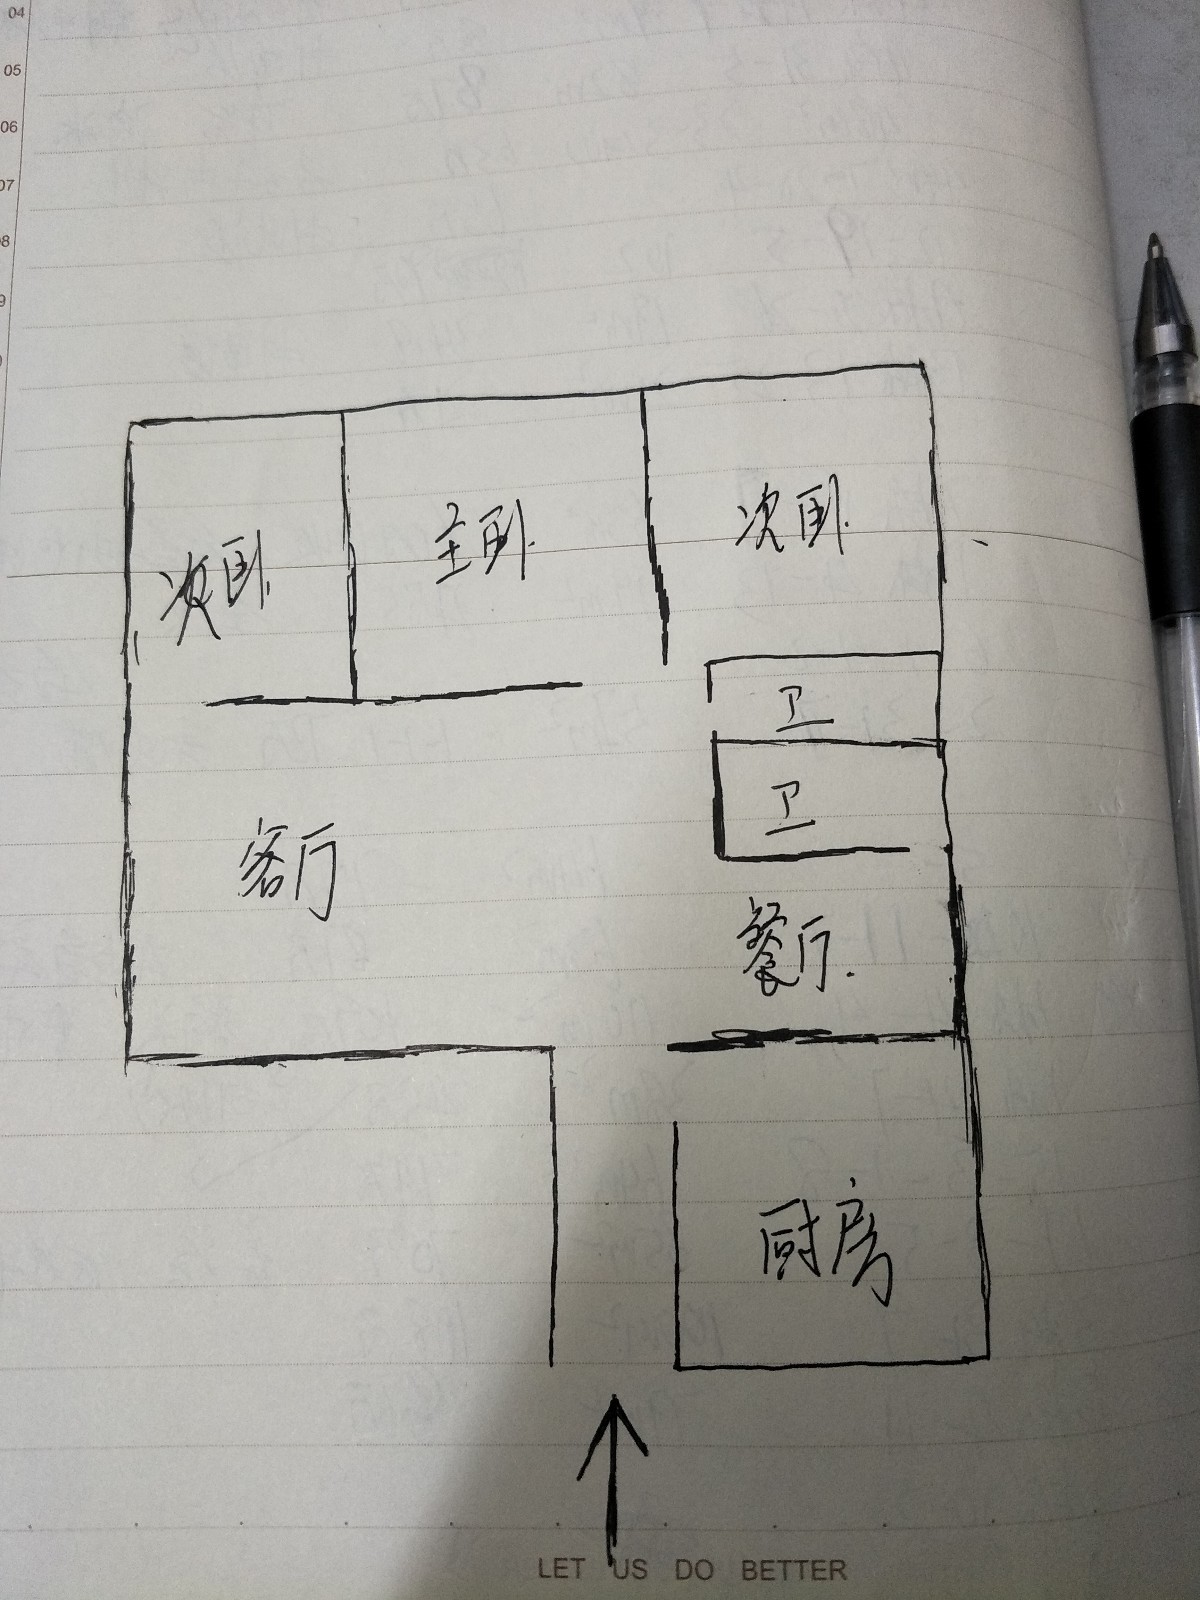 04
05
06
07
08
9
次卧
主卧
次卧
卫
卫
客厅
餐厅
厨房
LET US DO BETTER